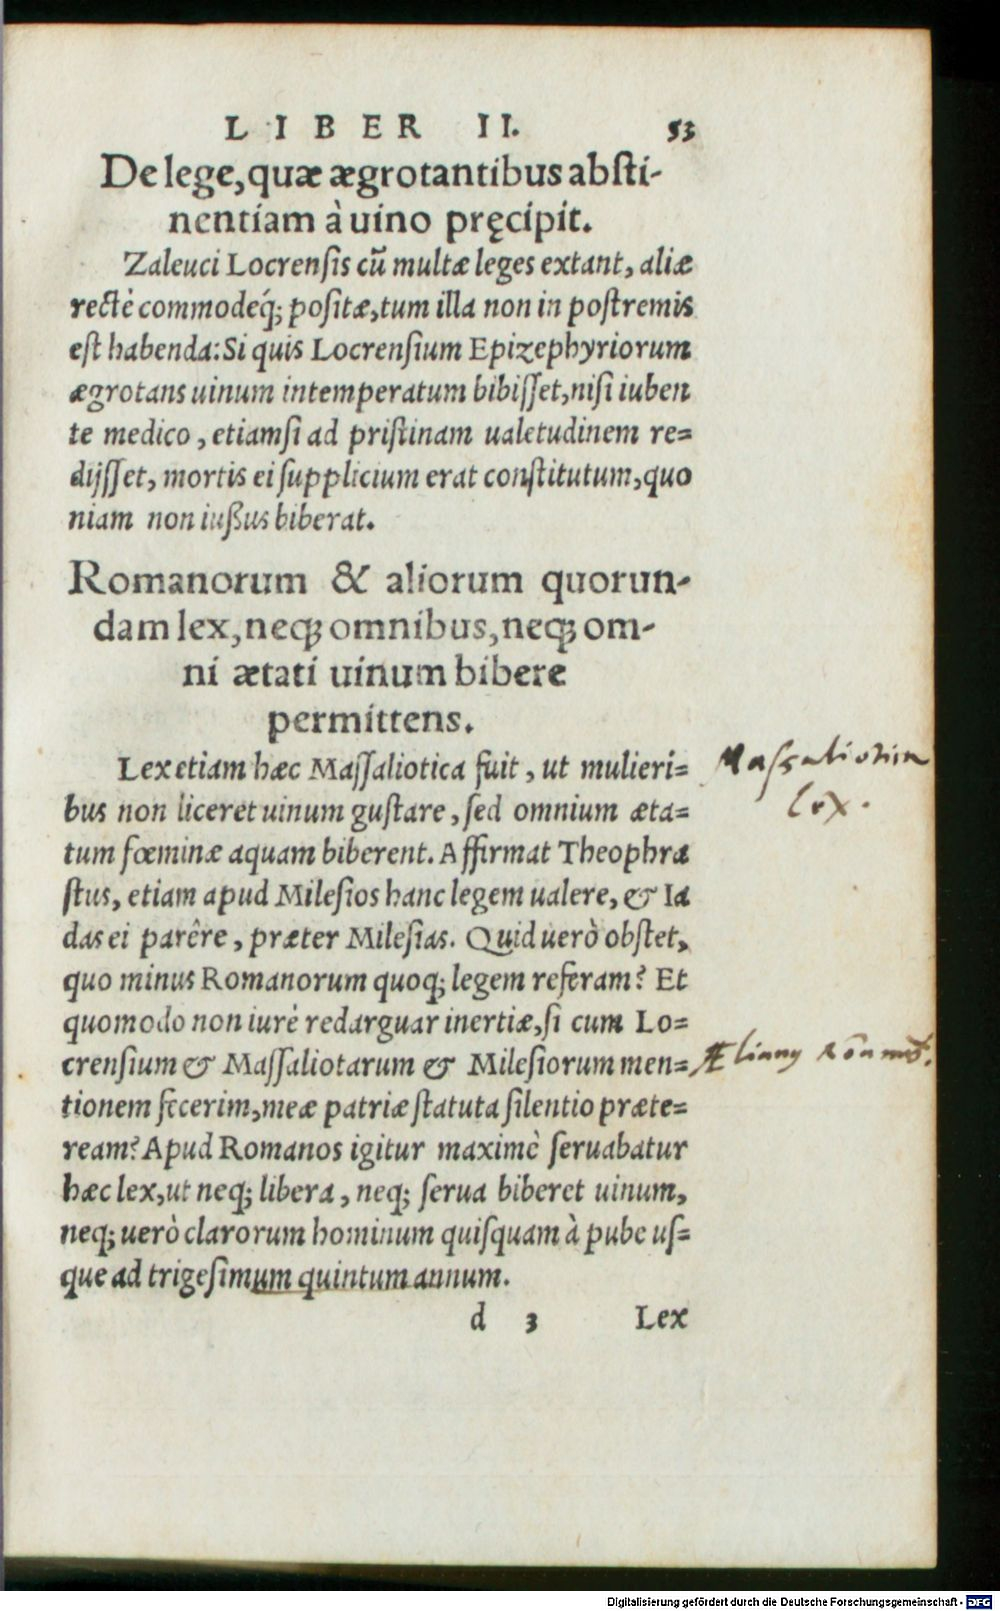 LIBER II. 53
De lege, quæ ægrotantibus absti-
nentiam à uino pręcipit.
Zaleuci Locrensis cũ multæ leges extant, aliæ
rectè commodeq́; positæ, tum illa non in postremis
est habenda: Si quis Locrensium Epizephyriorum
ægrotans uinum intemperatum bibisset, nisi iuben
te medico, etiamsi ad pristinam ualetudinem re=
dijsset, mortis ei supplicium erat constitutum, quo
niam non iußus biberat.
Romanorum & aliorum quorun-
dam lex, neq; omnibus, neq; om-
ni ætati uinum bibere
permittens.
Lex etiam hæc Massaliotica fuit, ut mulieri=
bus non liceret uinum gustare, sed omnium æta=
tum fœminæ aquam biberent. Affirmat Theophra
stus, etiam apud Milesios hanc legem ualere, & Ia
das ei parêre, præter Milesias. Quid uerò obstet,
quo minus Romanorum quoq; legem referam? Et
quomodo non iurè redarguar inertiæ, si cum Lo=
crensium & Massaliotarum & Milesiorum men=
tionem fecerim, meæ patriæ statuta silentio præte=
ream? Apud Romanos igitur maximè seruabatur
hæc lex, ut neq; libera, neq; serua biberet uinum,
neq; uerò clarorum hominum quisquam à pube us=
que ad trigesimum quintum annum.
d 3 Lex
Massaliotica
lex.